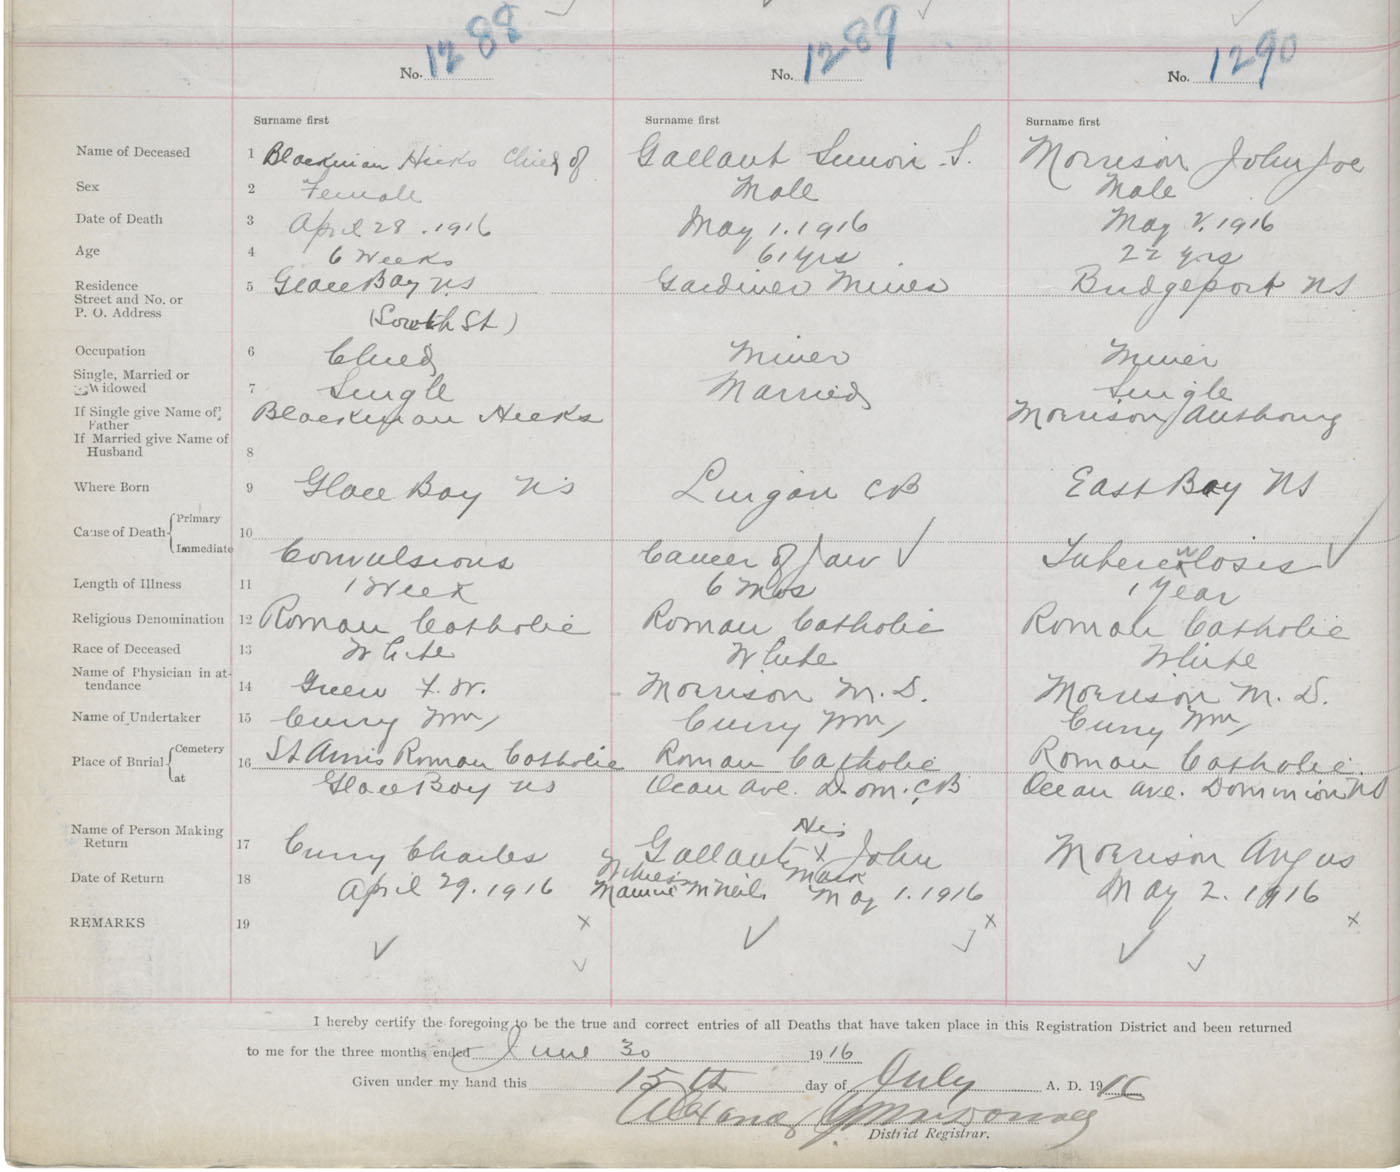 No. 1288 No. 1289 No. 1290
Surname first Surname first Surname first
Name of Deceased 1 Blackman Hicks Child of Gallant Simon S. Morrison John Joe
Sex 2 Female Male Male
Date of Death 3 April 28. 1916 May 1. 1916 May 2. 1916
Age 4 6 Weeks 61 yrs 22 yrs
Residence 5 Glace Bay NS Gardiner Mines Bridgeport NS
Street and No. or
P. O. Address (South St)
Occupation 6 Child Miner Miner
Single, Married or
Widowed 7 Single Married Single
If Single give Name of Father Blackman Hicks Morrison Anthony
If Married give Name of
Husband 8
Where Born 9 Glace Bay NS Lingan CB East Bay NS
Cause of Death { Primary 10
Immediate Convulsions Cancer of Jaw Tuberculosis
Length of Illness 11 1 Week 6 Mos 1 Year
Religious Denomination 12 Roman Catholic Roman Catholic Roman Catholic
Race of Deceased 13 White White White
Name of Physician in at-
tendance 14 Green F. W. Morrison M. D. Morrison M. D.
Name of Undertaker 15 Curry Wm Curry Wm Curry Wm
Place of Burial { Cemetery 16 St Anns Roman Catholic Roman Catholic Roman Catholic
at Glace Bay NS Ocean Ave. Dom. CB Ocean Ave. Dominion NS
Name of Person Making
Return 17 Curry Charles Gallant His x Mark John Morrison Angus
Witness
Date of Return 18 April 29. 1916 McNeil May 1. 1916 May 2. 1916
REMARKS 19
I hereby certify the foregoing to be the true and correct entries of all Deaths that have taken place in this Registration District and been returned
to me for the three months ended June 30 1916
Given under my hand this 15th day of July A. D. 1916
District Registrar.